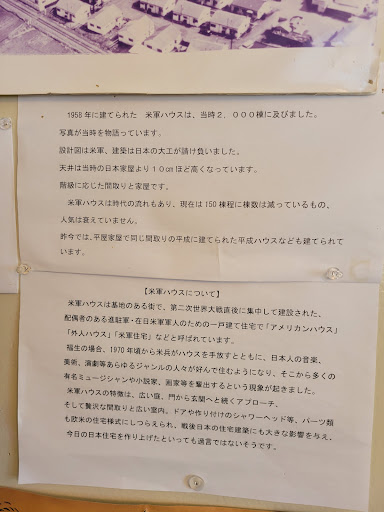 1958年に建てられた 米軍ハウスは、当時2,000棟に及びました。
写真が当時を物語っています。
設計図は米軍、建築は日本の大工が請け負いました。
天井は当時の日本家屋より10㎝ほど高くなっています。
階級に応じた間取りと家屋です。
米軍ハウスは時代の流れもあり、現在は150棟程に棟数は減っているもの、
人気は衰えていません。
昨今では、平屋家屋で同じ間取りの平成に建てられた平成ハウスなども建てられて
います。
【米軍ハウスについて】
米軍ハウスは基地のある街で、第二次世界大戦直後に集中して建設された、
配偶者のある進駐軍・在日米軍軍人のための一戸建て住宅で「アメリカンハウス」
「外人ハウス」「米軍住宅」などと呼ばれています。
福生の場合、1970年頃から米兵がハウスを手放すとともに、日本人の音楽、
美術、演劇等あらゆるジャンルの人々が好んで住むようになり、そこから多くの
有名ミュージシャンや小説家、画家等を輩出するという現象が起きました。
米軍ハウスの特徴は、広い庭、門から玄関へと続くアプローチ、
そして贅沢な間取りと広い室内。ドアや作り付けのシャワーヘッド等、パーツ類
も欧米の住宅様式にしつらえられ、戦後日本の住宅建築にも大きな影響を与え、
今日の日本住宅を作り上げたといっても過言ではないそうです。